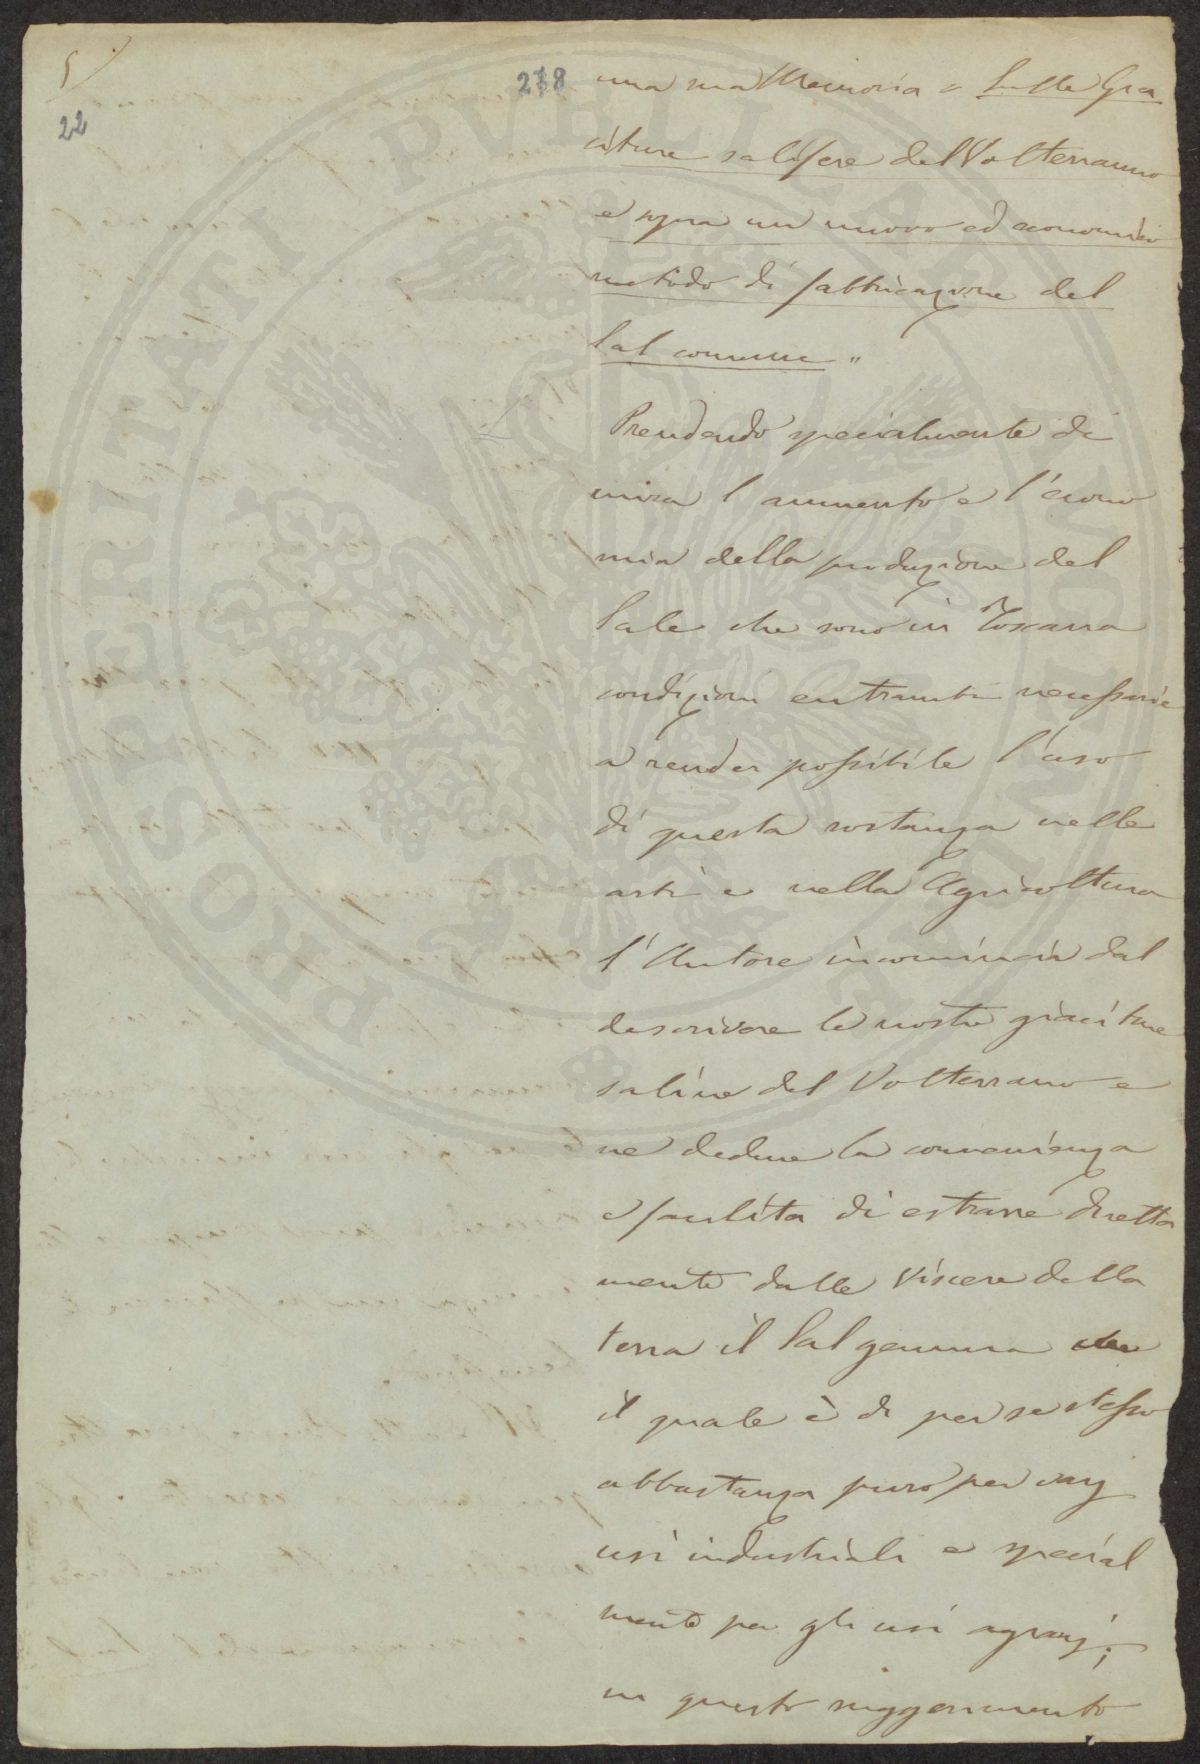 5/
22
218
una sua Memoria " Sulle Gia
citure salifere del Volterrano
e sopra un nuovo ed economico
metodo di fabbricazione del
Sal comune "
Prendendo specialmente di
mira l'aumento e l'econo
mia della produzione del
Sale che sono in Toscana
condizioni entrambi necessarie
a render possibile l'uso
di questa sostanza nelle
arti e nella Agricoltura
l'Autore incomincia dal
descrivere le nostre giaciture
saline del Volterrano e
ne deduce la convenienza
e facilità di estrarre diretta
mente dalle viscere della
terra il Sal gemma
il quale è di per se stesso
abbastanza puro per varj
usi industriali e special
mente per gli usi agrarj;
un questo suggerimento
PROSPERITATI PVBLICAE AVGENDAE